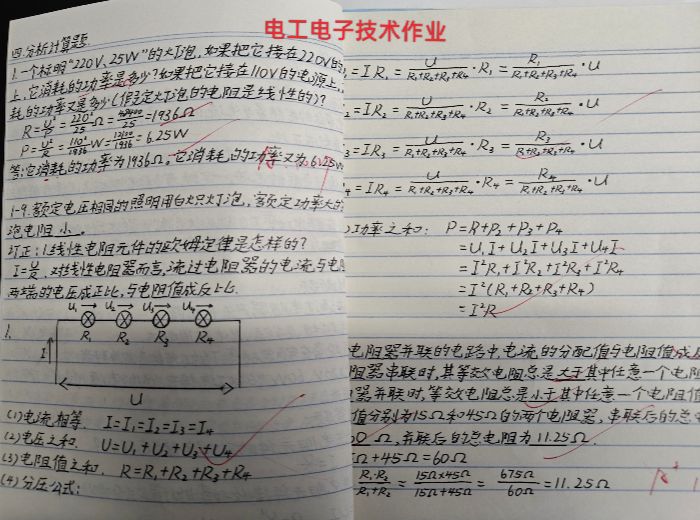 电工电子技术作业
四.分析计算题.
1.一个标明"220V,25W"的灯泡,如果把它接在220V的
上,它消耗的功率是多少?如果把它接在110V的电源上,
耗的功率又是多少(假定灯泡的电阻是线性的)?
R=U²/P=220²/25Ω=48400/25=1936Ω
P=U²/R=110²/1936W=12100/1936=6.25W
答:它消耗的功率为1936Ω,它消耗的功率又为6.25W
1-9.额定电压相同的照明用白炽灯泡,额定功率大的
泡电阻小。
订正:1.线性电阻元件的欧姆定律是怎样的?
I=U/R.对线性电阻器而言,流过电阻器的电流与电阻
两端的电压成正比,与电阻值成反比.
U₁ U₂ U₃ U₄
1.
R₁ R₂ R₃ R₄
I
U
(1)电流相等. I=I₁=I₂=I₃=I₄
(2)电压之和. U=U₁+U₂+U₃+U₄
(3)电阻值之和. R=R₁+R₂+R₃+R₄
(4)分压公式:
=IR₁=U/(R₁+R₂+R₃+R₄)·R₁=R₁/(R₁+R₂+R₃+R₄)·U
=IR₂=U/(R₁+R₂+R₃+R₄)·R₂=R₂/(R₁+R₂+R₃+R₄)·U
=IR₃=U/(R₁+R₂+R₃+R₄)·R₃=R₃/(R₁+R₂+R₃+R₄)·U
=IR₄=U/(R₁+R₂+R₃+R₄)·R₄=R₄/(R₁+R₂+R₃+R₄)·U
功率之和: P=P₁+P₂+P₃+P₄
=U₁I+U₂I+U₃I+U₄I
=I²R₁+I²R₂+I²R₃+I²R₄
=I²(R₁+R₂+R₃+R₄)
=I²R
电阻器并联的电路中,电流的分配值与电阻值成
阻器串联时,其等效电阻总是大于其中任意一个电阻
器并联时,等效电阻总是小于其中任意一个电阻值
值分别为15Ω和45Ω的两个电阻器,串联后的总
Ω,并联后的总电阻为11.25Ω.
Ω+45Ω=60Ω
R₁·R₂/(R₁+R₂)=15Ω×45Ω/(15Ω+45Ω)=675Ω/60Ω=11.25Ω